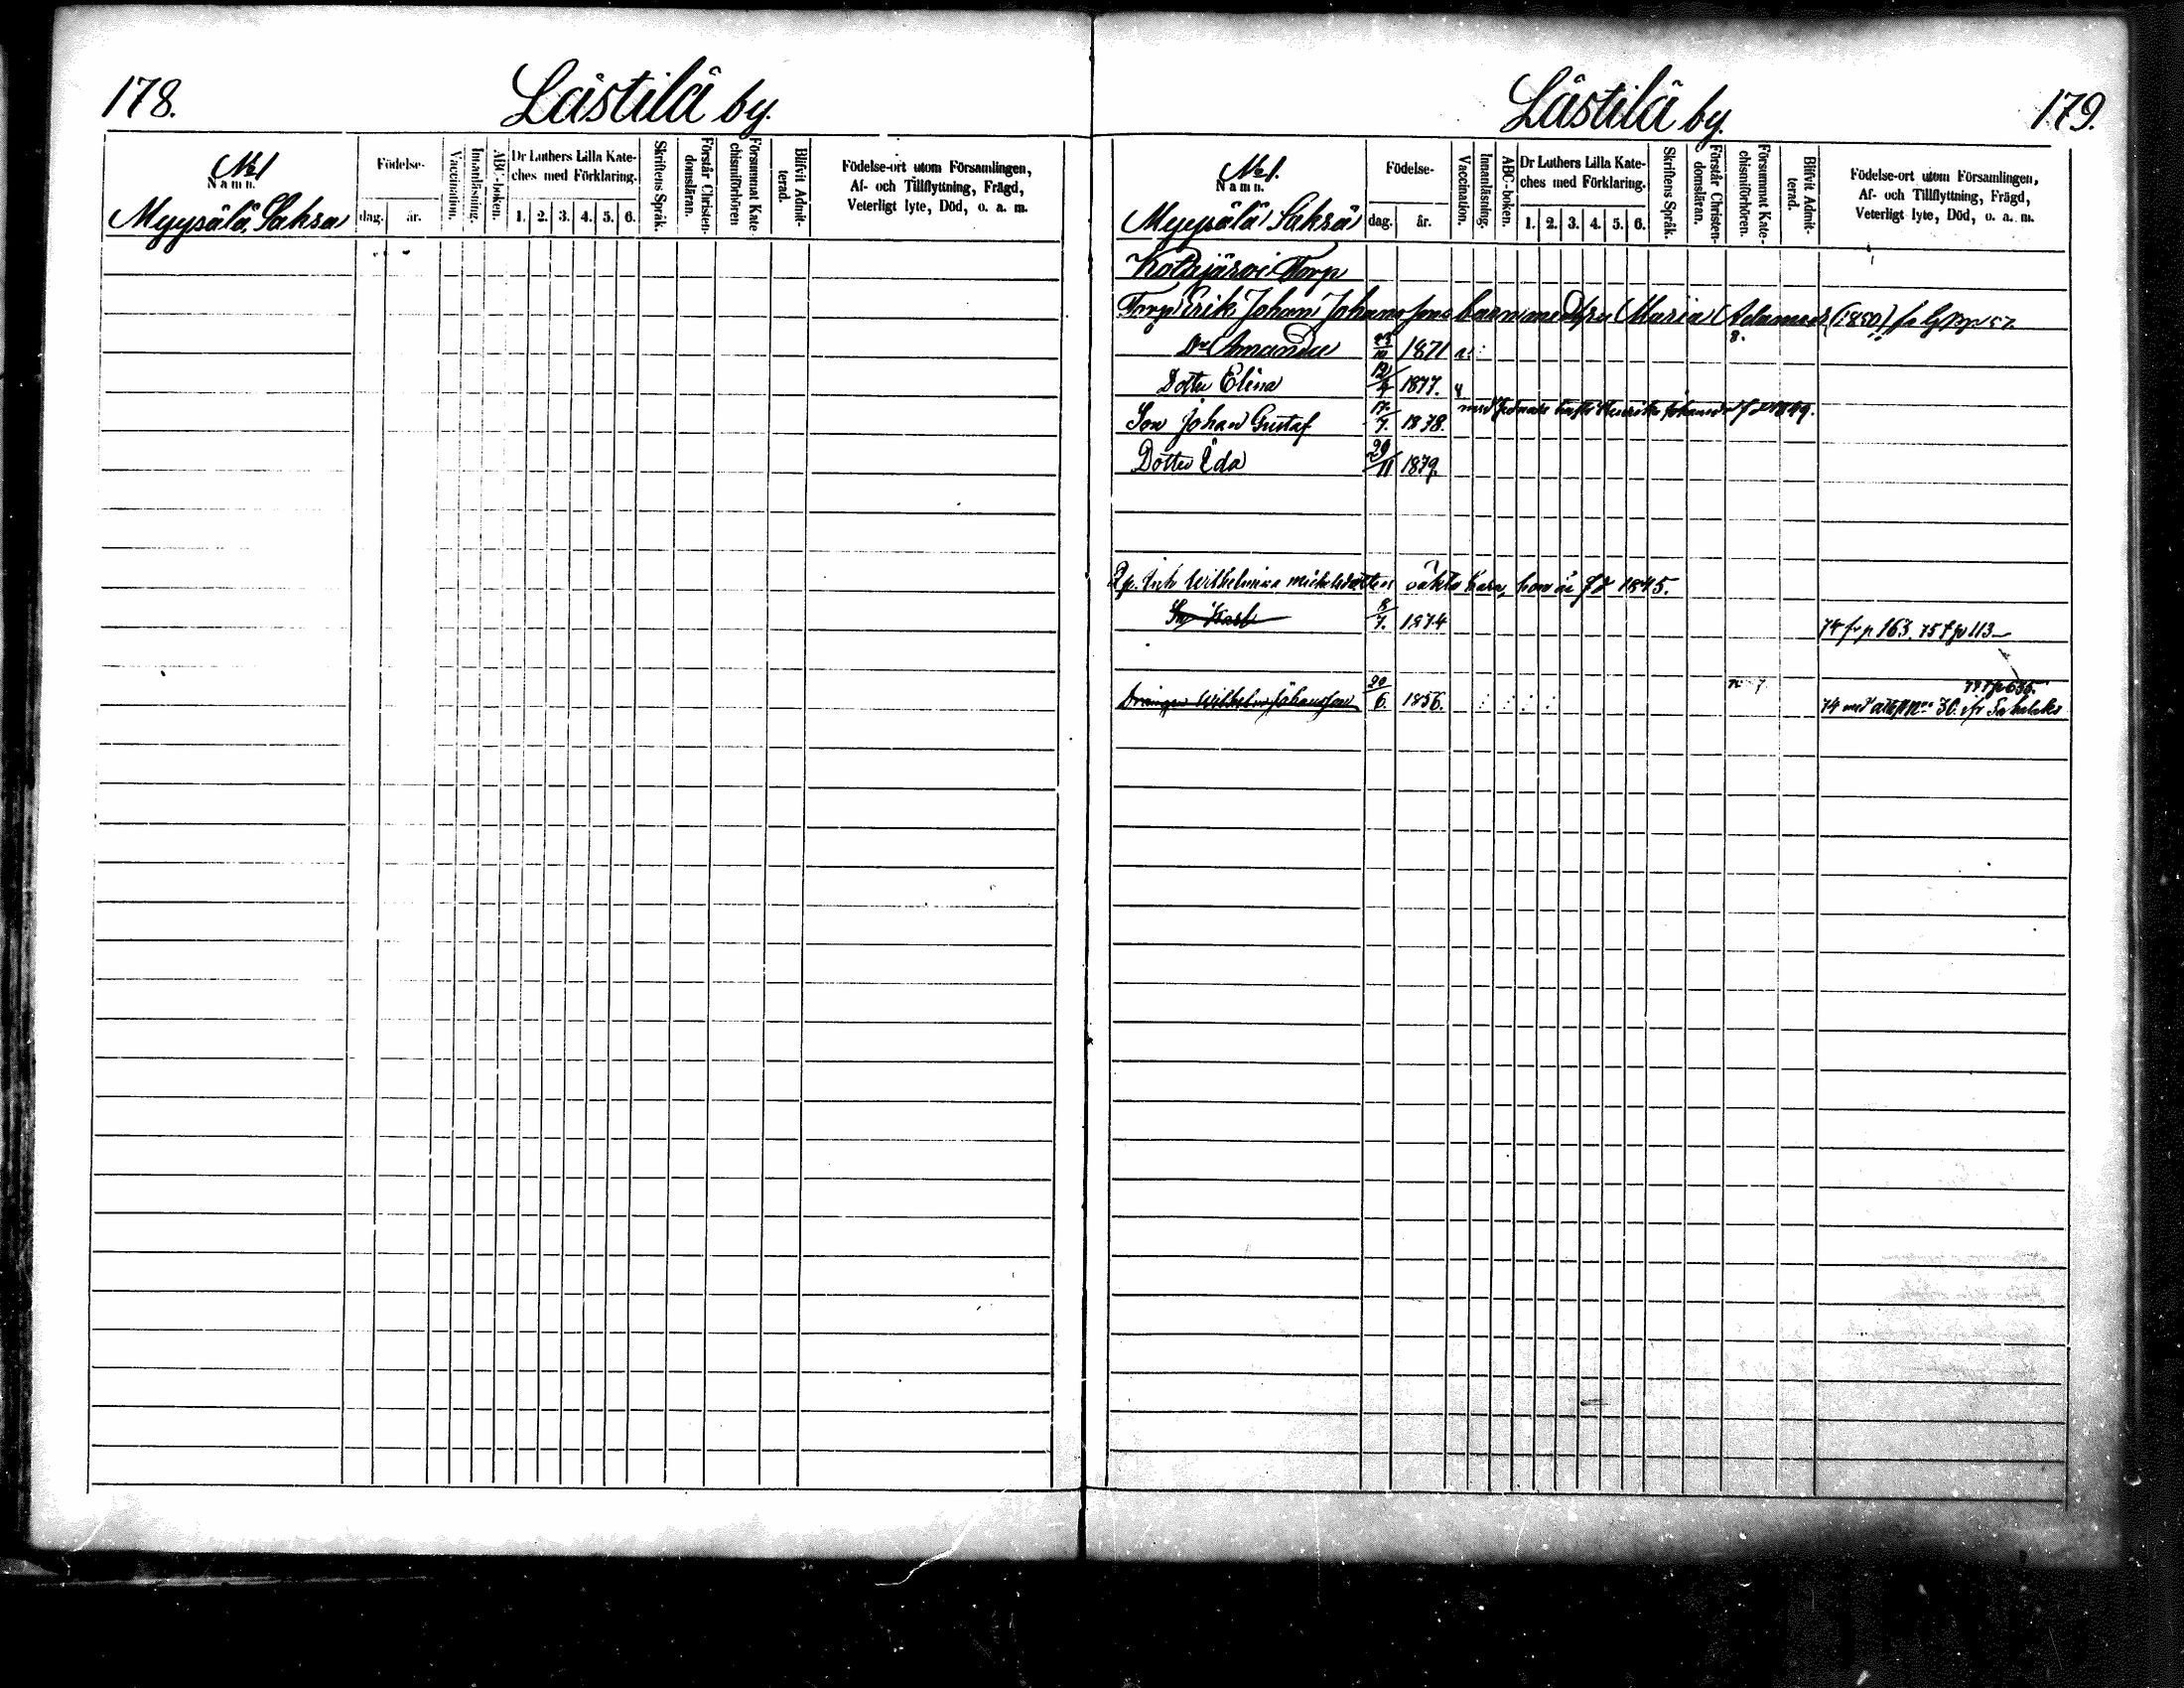 178.
Lästilä by.
No 1
Namn.
Myysälä, Saksa
Födelse-
dag.
år.
Vaccination.
Innanläsning.
ABC-boken.
Dr Luthers Lilla Kate-
ches med Förklaring.
1. 2. 3. 4. 5. 6.
Skriftens Språk.
Förstår Christen-
domsläran.
Försummat Kate-
chismiförhören
Blifvit Admit-
terad.
Födelse-ort utom Församlingen,
Af- och Tillflyttning, Frägd,
Veterligt lyte, Död, o. a. m.
Lästilä by.
179.
No 1.
Namn.
Myysälä Saksa
Födelse-
dag.
år.
Vaccination.
Innanläsning.
ABC-boken.
Dr Luthers Lilla Kate-
ches med Förklaring.
1. 2. 3. 4. 5. 6.
Skriftens Språk.
Förstår Christen-
domsläran.
Försummat Kate-
chismiförhören.
Blifvit Admit-
terad.
Födelse-ort utom Församlingen,
Af- och Tillflyttning, Frägd,
Veterligt lyte, Död, o. a. m.
Torp
Torp Erik Johan Johanssons barn med Maria (1850)
8.
Dr Amanda 1871
Dotter Elina 12/4 1877.
med
Son Johan Gustaf 17/7. 1878.
Dotter Eda 29/11 1879.
Wilhelmina Michelsdotters oäkta barn, hon är fd 1845.
Karl 8/7. 1874 74 fr p 163. 75 t p 113
Drängen Wilhelm Johansson 20/6. 1856. 74 med